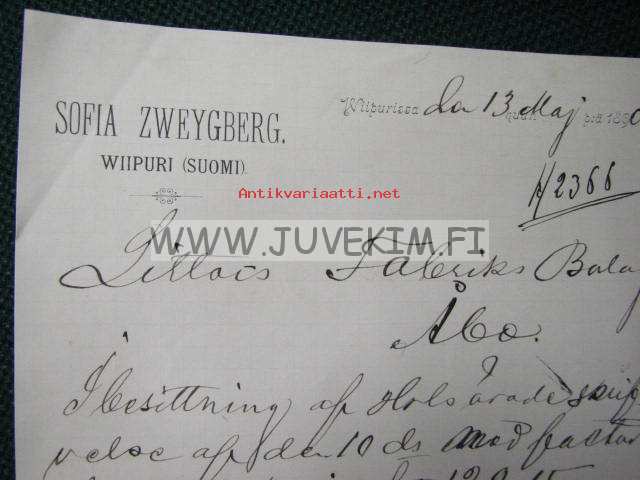 SOFIA ZWEYGBERG.
WIIPURI (SUOMI).
Wiipurissa den 13 Maj p:nä 189
kuun
№ 2366
Antikvariaatti.net
WWW.JUVEKIM.FI
Littois Fabriks Bolag
Åbo.
I besittning af
velse af den 10 ds med factur